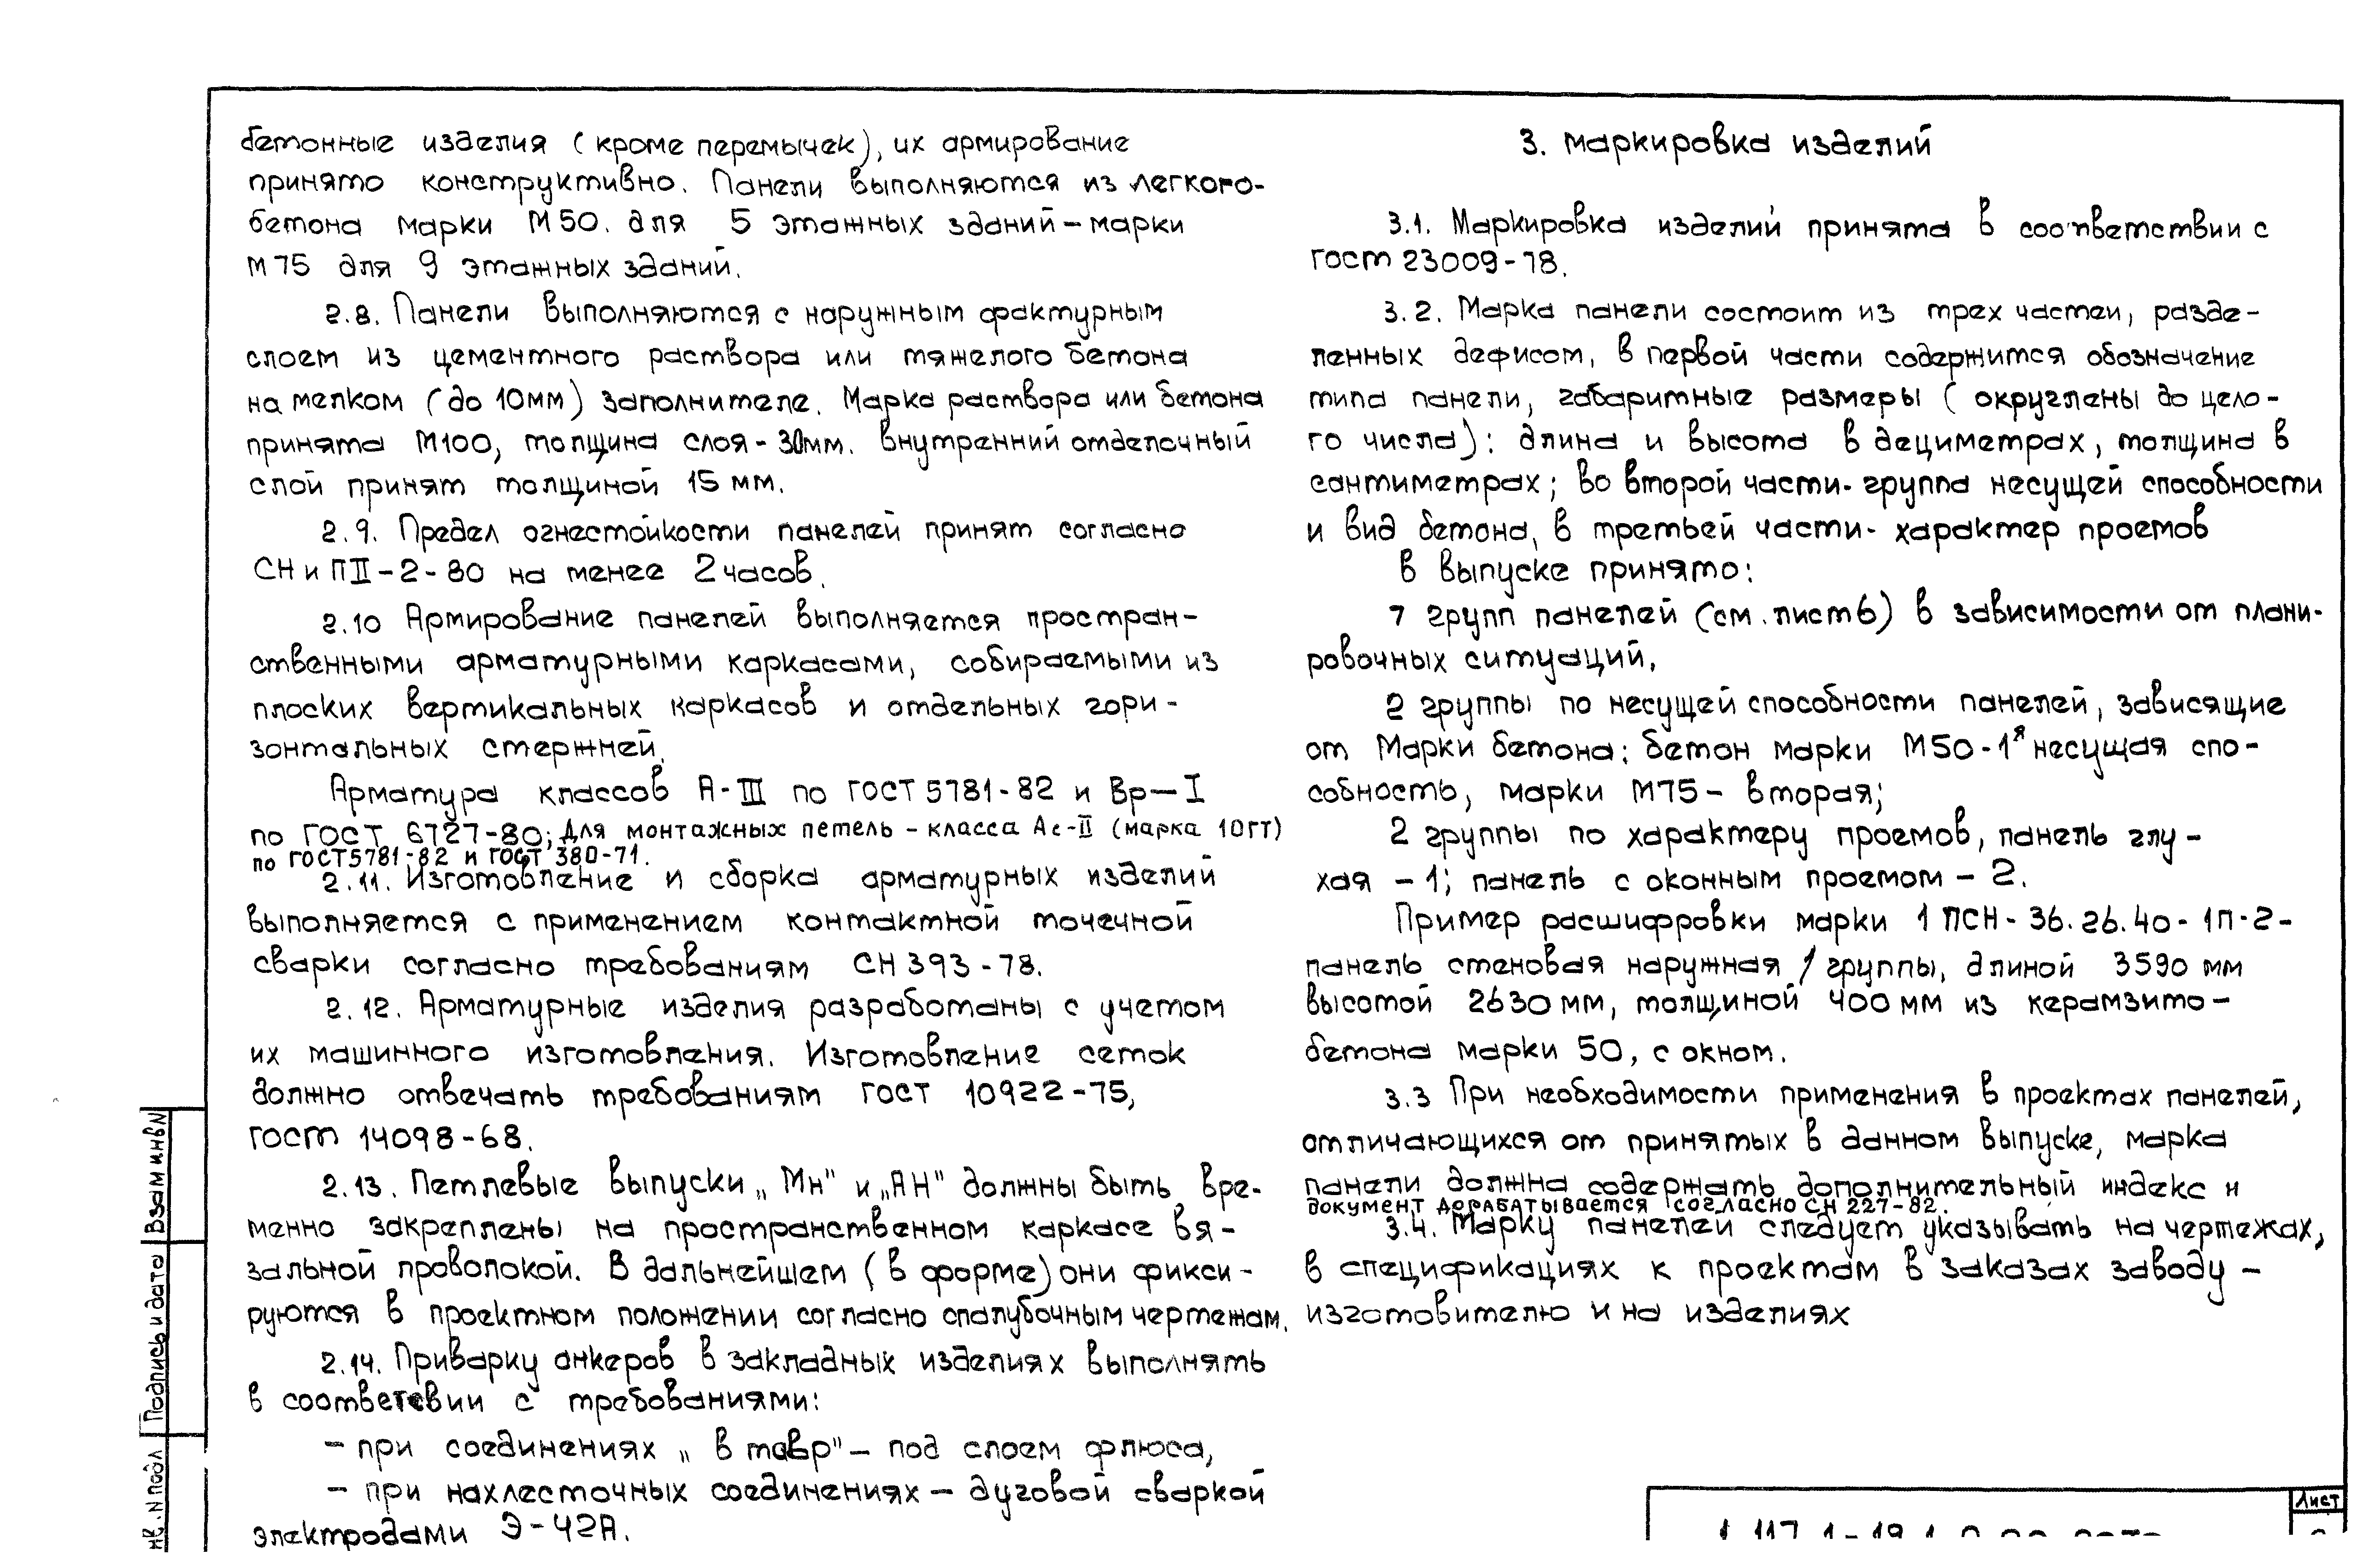 бетонные изделия (кроме перемычек), их армирование
принято конструктивно. Панели выполняются из легкого-
бетона марки М50. для 5 этажных зданий – марки
М75 для 9 этажных зданий.
2.8. Панели выполняются с наружным фактурным
слоем из цементного раствора или тяжелого бетона
на мелком (до 10мм) заполнителе. Марка раствора или бетона
принята М100, толщина слоя - 30мм. Внутренний отделочный
слой принят толщиной 15 мм.
2.9. Предел огнестойкости панелей принят согласно
СНиПII-2-80 на менее 2 часов.
2.10 Армирование панелей выполняется простран-
ственными арматурными каркасами, собираемыми из
плоских вертикальных каркасов и отдельных гори-
зонтальных стержней.
Арматура классов А-III по ГОСТ 5781-82 и Вр-I
по ГОСТ 6727-80; для монтажных петель - класса Ас-II (марка 10ГТ)
по ГОСТ5781-82 и ГОСТ 380-71.
2.11. Изготовление и сборка арматурных изделий
выполняется с применением контактной точечной
сварки согласно требованиям СН 393-78.
2.12. Арматурные изделия разработаны с учетом
их машинного изготовления. Изготовление сеток
должно отвечать требованиям ГОСТ 10922-75,
ГОСТ 14098-68.
2.13. Петлевые выпуски „Мн" и „АН" должны быть вре-
менно закреплены на пространственном каркасе вя-
зальной проволокой. В дальнейшем (в форме) они фикси-
руются в проектном положении согласно опалубочным чертежам.
2.14. Приварку анкеров в закладных изделиях выполнять
в соответсвии с требованиями:
- при соединениях „ в тавр" - под слоем флюса,
- при нахлесточных соединениях - дуговой сваркой
электродами Э-42А.
3. Маркировка изделий
3.1. Маркировка изделий принята в соответствии с
ГОСТ 23009-78.
3.2. Марка панели состоит из трех частей, разде-
ленных дефисом, в первой части содержится обозначение
типа панели, габаритные размеры (округлены до цело-
го числа): длина и высота в дециметрах, толщина в
сантиметрах; во второй части - группа несущей способности
и вид бетона, в третьей части - характер проемов
В выпуске принято:
7 групп панелей (см. лист 6) в зависимости от плани-
ровочных ситуаций,
2 группы по несущей способности панелей, зависящие
от Марки бетона: бетон марки М50-1я несущая спо-
собность, марки М75 - вторая;
2 группы по характеру проемов, панель глу-
хая - 1; панель с оконным проемом - 2.
Пример расшифровки марки 1 ПСН - 36.26.40 - 1П-2-
панель стеновая наружная 1 группы, длиной 3590 мм
высотой 2630 мм, толщиной 400 мм из керамзито-
бетона марки 50, с окном.
3.3 При необходимости применения в проектах панелей,
отличающихся от принятых в данном выпуске, марка
панели должна содержать дополнительный индекс и
документ дорабатывается согласно СН 227-82.
3.4. Марку панелей следует указывать на чертежах,
в спецификациях к проектам в заказах заводу -
изготовителю и на изделиях
Взам инв N
Подпись и дата
Инв. N подл
Лист